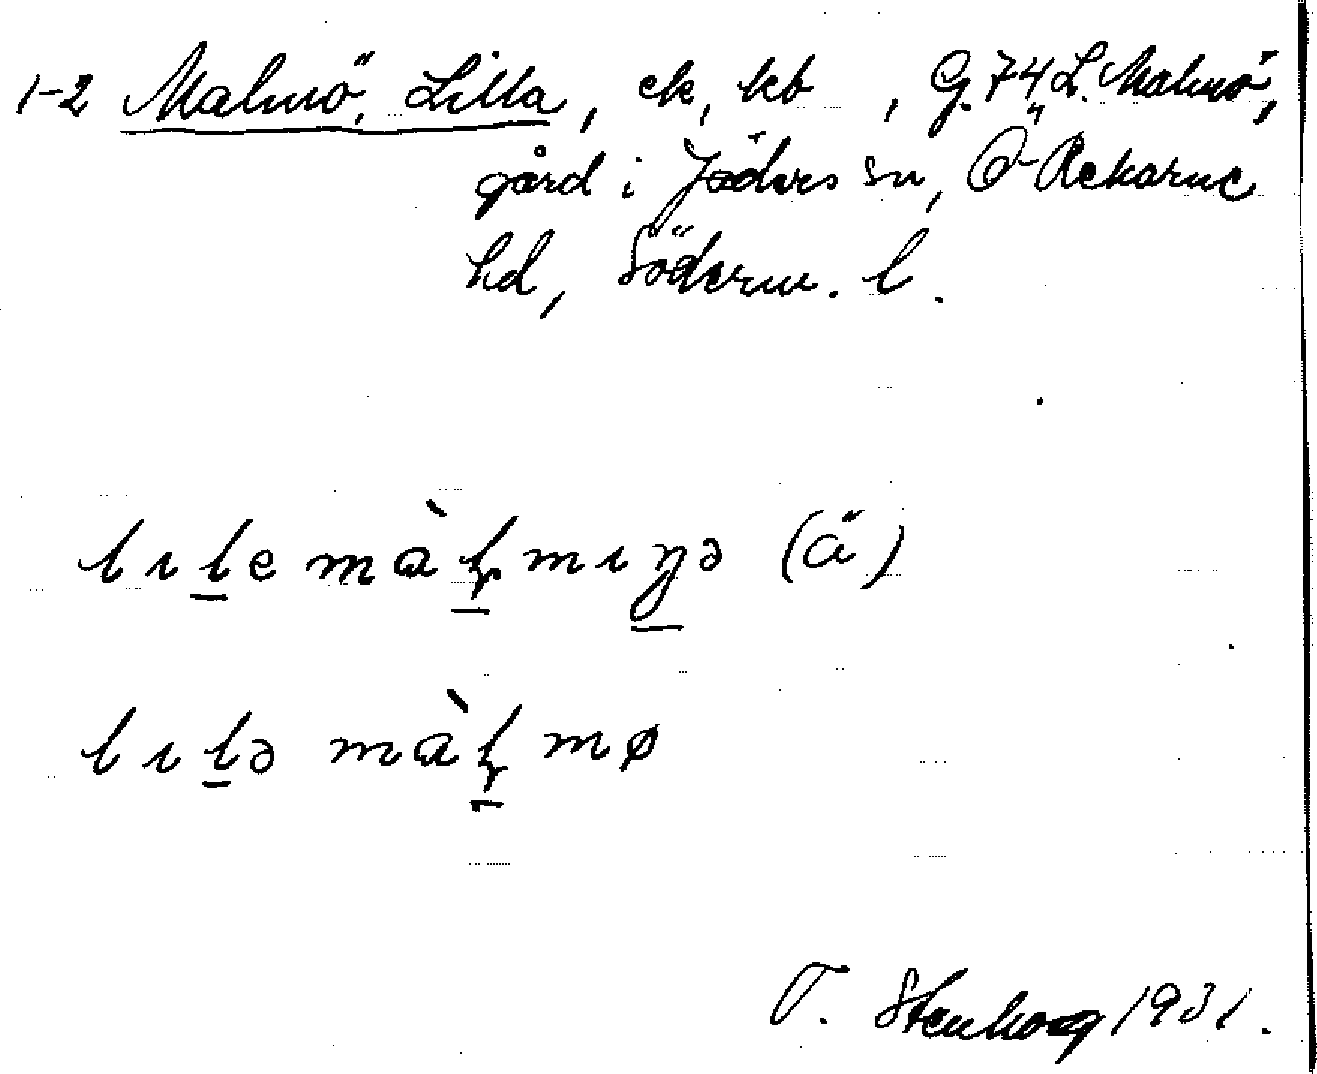 1-2 Malmö, Lilla, ek, kb, G. 74 L. Malmö,
gård i Jäders sn, Ö-Rekarne
hd, Söderm. l.
lıle màl̥mıŋə (ä)
lılə màl̥mø
T. Stenborg 1931.